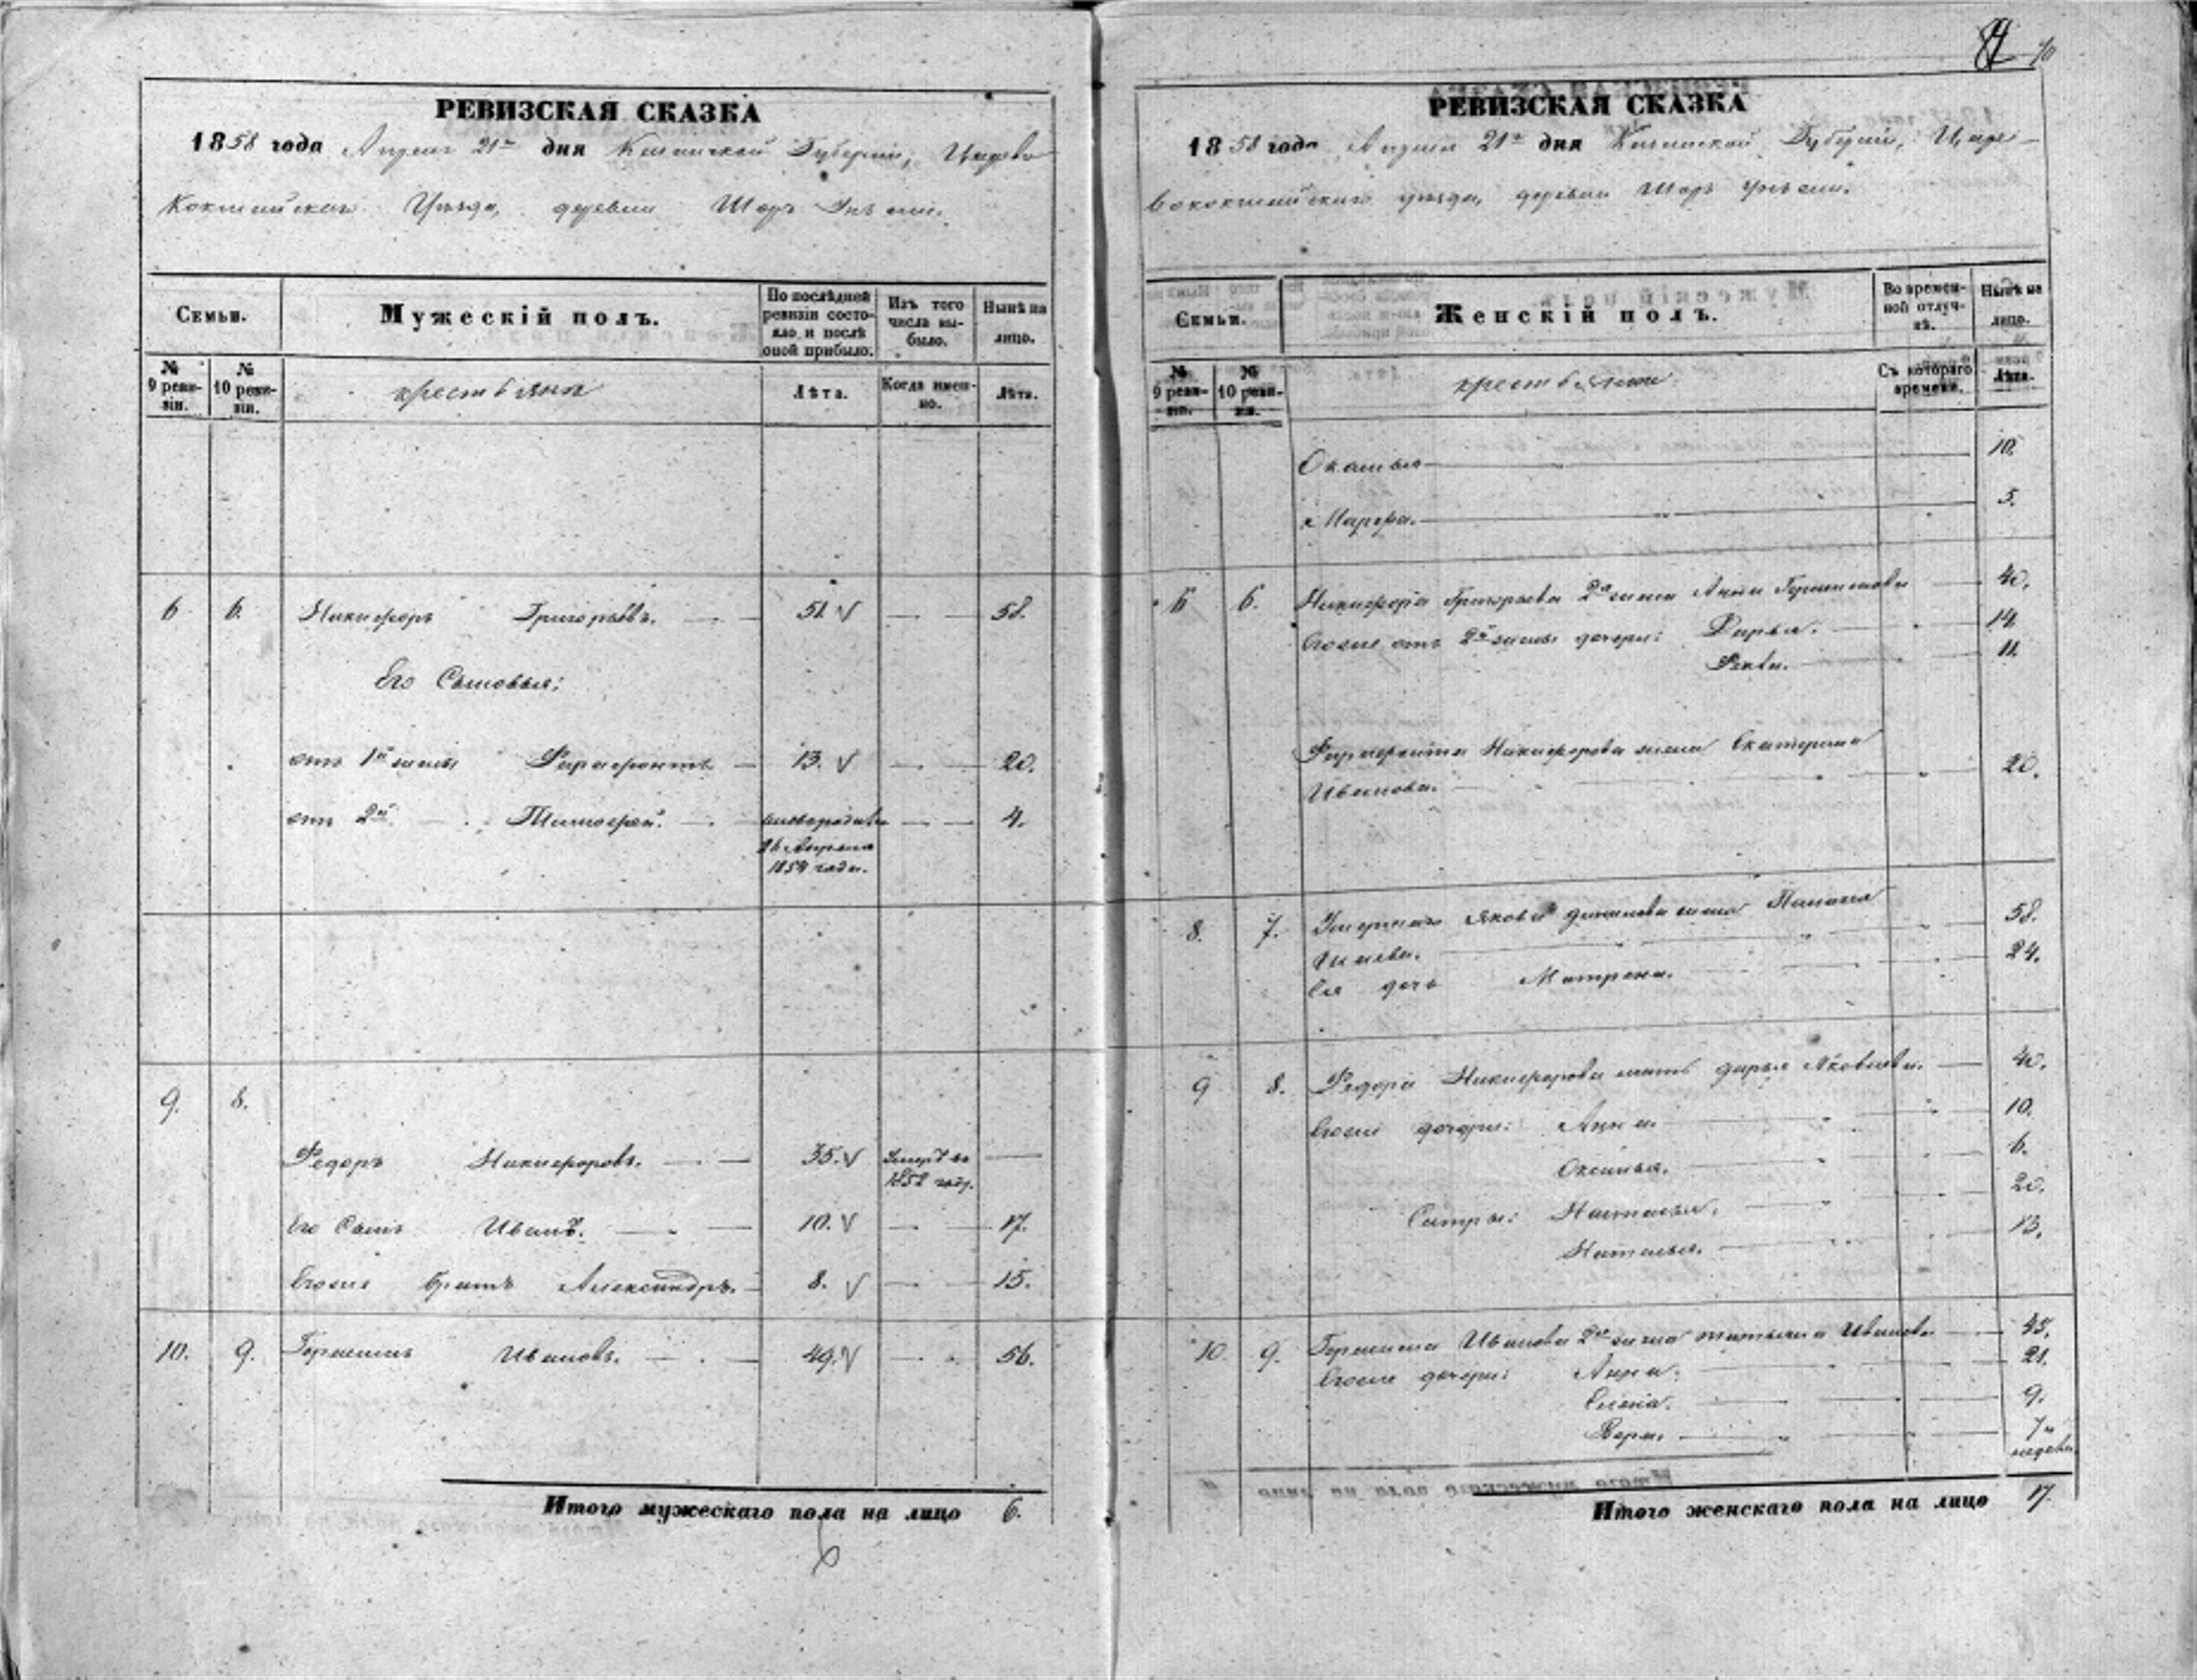 РЕВИЗСКАЯ СКАЗКА
1858 года Апреля 21го дня Казанской Губернии, Царево
Кокшайскаго Уезда, деревни Шоръ
Семьи.
Мужескій полъ.
По последней ревизіи состояло и после оной прибыло.
Изъ того числа выбыло.
Ныне на лицо.
№ 9 ревизіи.
№ 10 ревизіи.
крестьяне
Лѣта.
Когда именно.
Лѣта.
6 6. Никифоръ Григорьевъ. 51. 58.
Его Сыновья:
отъ 1й жены Фарафонтъ 13. 20.
отъ 2й Тимофей. новорожден 4.
Апреля
1854 года.
9. 8.
Федоръ Никифоровъ. 35. Умеръ въ
1852 году.
Его Сынъ Иванъ. 10. 17.
Егоже братъ Александръ. 8. 15.
10. 9. Герасимъ Ивановъ. 49. 56.
Итого мужескаго пола на лицо 6.
6
84 70
РЕВИЗСКАЯ СКАЗКА
1858 года Апреля 21го дня Казанской Губерніи, Царе-
вококшайскаго уезда, деревни Шоръ
Семьи.
Женскій полъ.
Во временной отлучкѣ.
Нынѣ на лицо.
№ 9 ревизіи.
№ 10 ревизіи.
крестьянки
Съ котораго времени.
Лѣта.
Окалина 10.
Марфа. 5.
6 6. Никифора Григорьева 2я жена Анна Герасимова 40.
Егоже отъ 2й жены дочери: Дарья. 14.
Фекла. 11.
Фарафонта Никифорова жена Екатерина
Иванова. 20.
8. 7. Умершаго Якова жена 58.
Ея дочь Матрена. 24.
9 8. Федора Никифорова мать Дарья Яковлева. 40.
Егоже дочери: Анна. 10.
Оксинья. 6.
Сестры: Настасья. 20.
Наталья. 13.
10 9. Герасима Иванова 2я жена Татьяна Иванова 45.
Егоже дочери: Анна. 21.
Елена. 9.
Вера. 7и
недель
Итого женскаго пола на лицо 17.